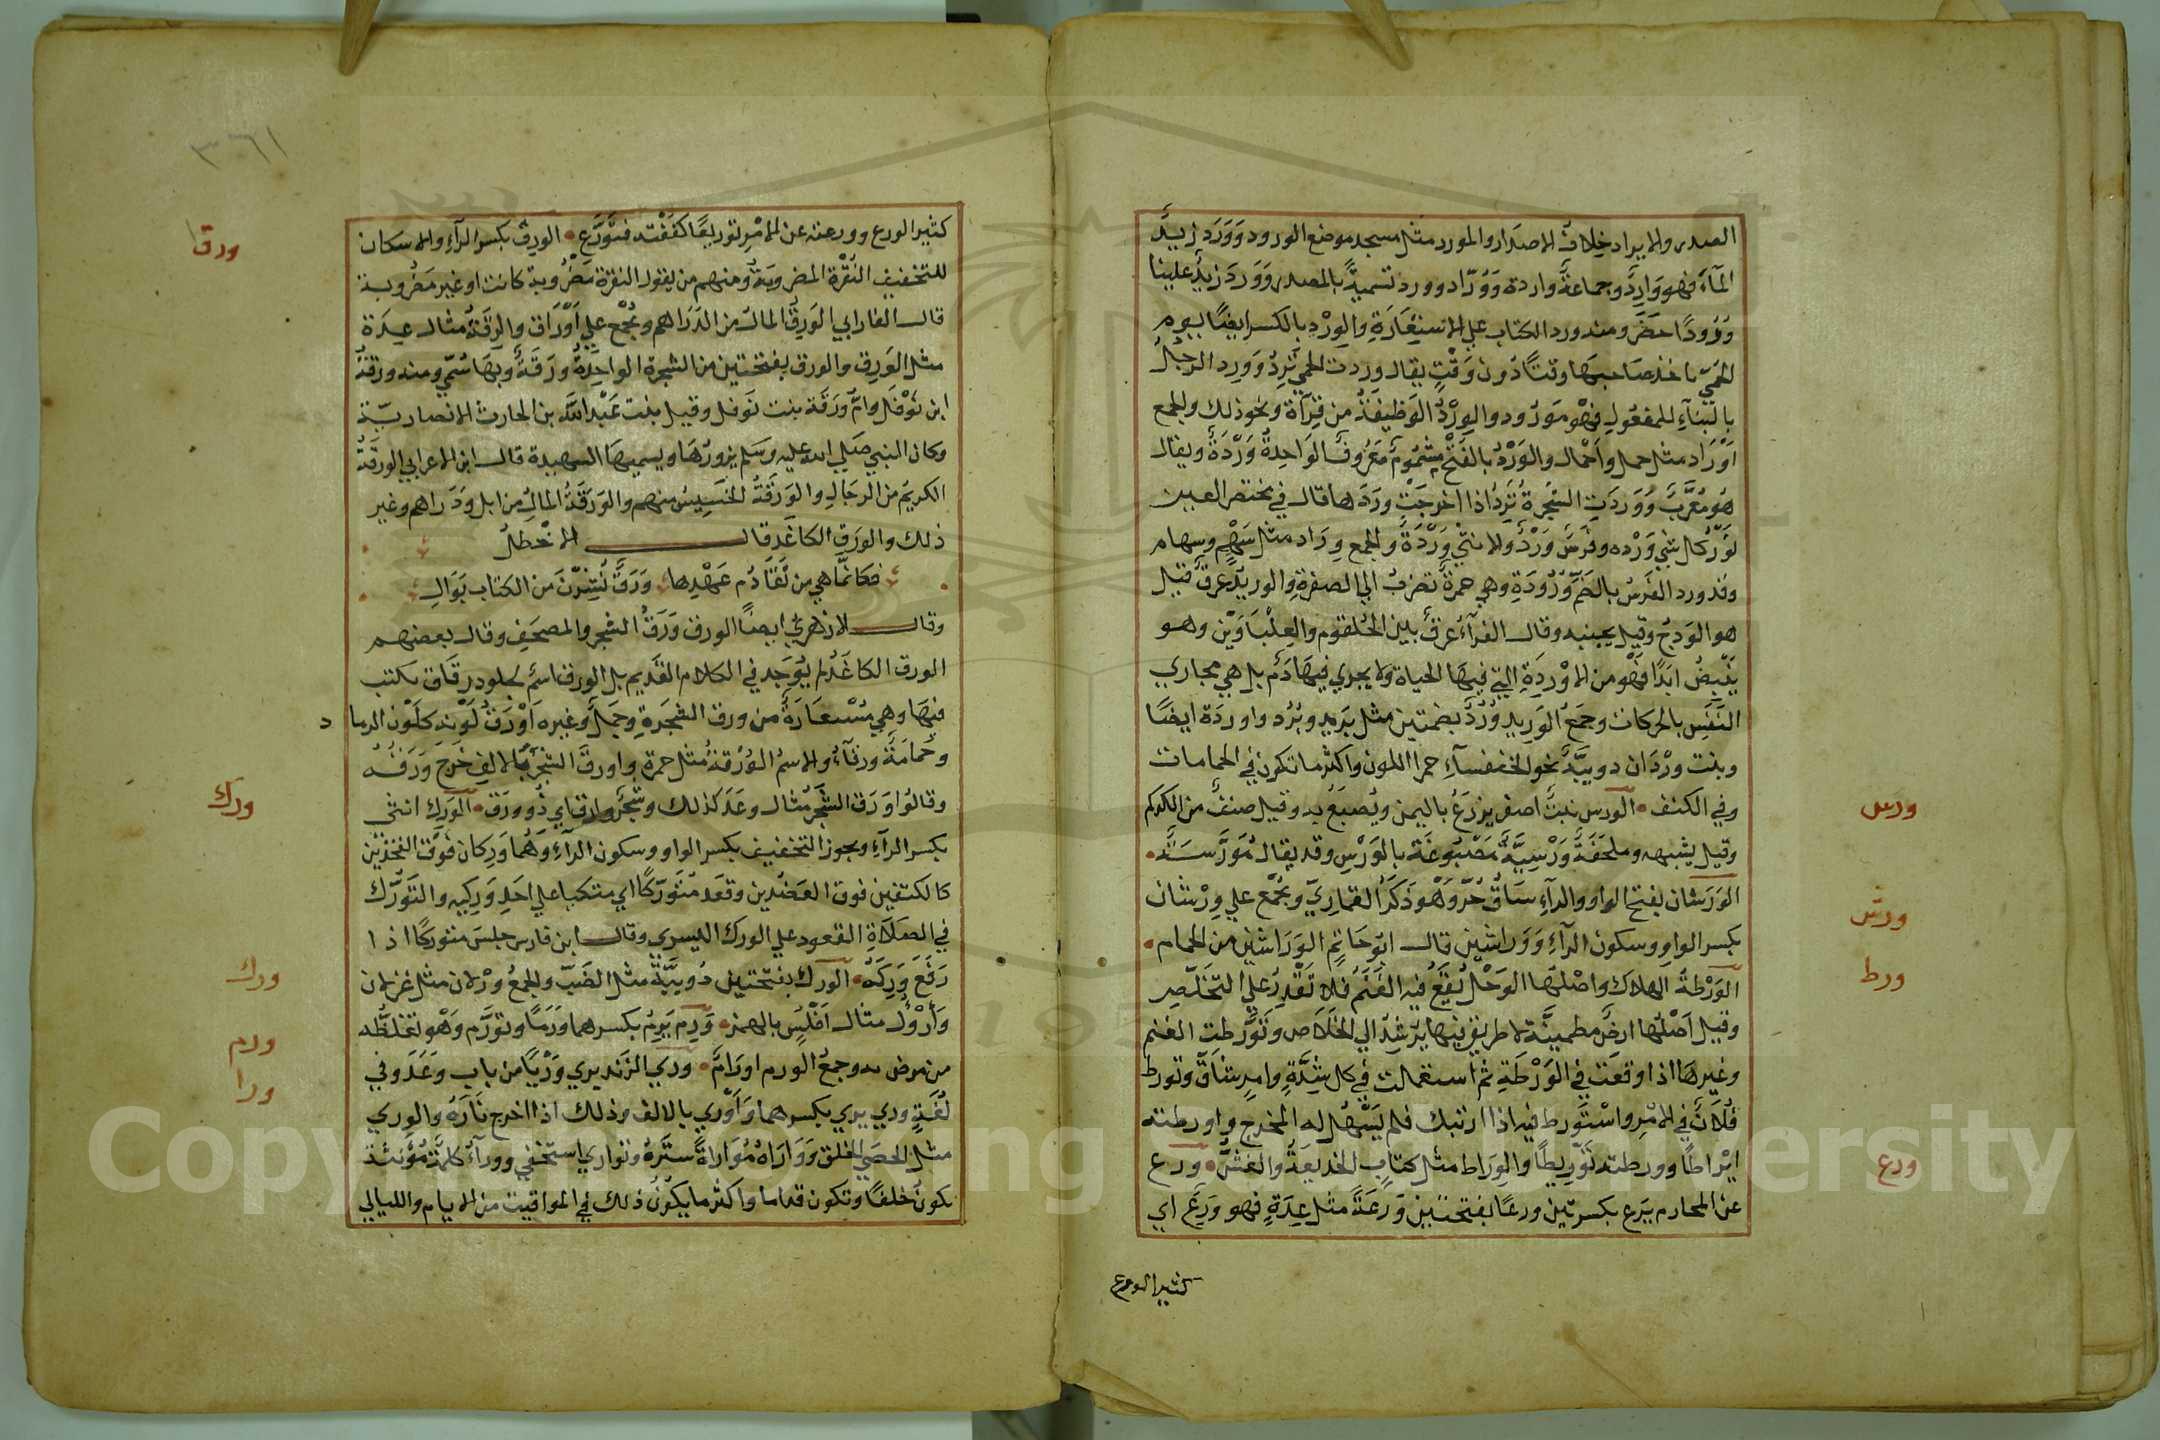 الصدر والايراد خلاف الاصدار والمورد مثل مسجد موضع الورود وَوَرَدَ زيدٌ
المآءَ فهو وَارِدٌ وجماعةٌ واردة وَوُرَّاد وورد تسميةً بالمصدر وَوَرَدَ زيدٌ علينا
وُرُودًا حَضَرَ ومنه ورد الكتاب علي الاستِعَارَةِ والوِرْد بالكسر ايضًا يوم
الحُمَّي ياخذ صَاحبهَا وقتًا دُون وَقْتٍ يقال وردت الحمي تَرِدُ وَوُرِد الرجلُ
بالبنآءِ للمفعُولِ فهْو مَورُود والوِرْدُ الوَظيفَةُ من قِرَآة ونحو ذلك والجمع
اَوْرَاد مثل حمل واَحْمال والوَرْدُ بالفَتْح مشمُومٌ مَعْرُوفٌ الوَاحِدةُ وَرْدَةٌ ويقال
هُو مُعَرَّبٌ وَوَردَتِ الشجرةُ تَرِدُ اذا اخرجَتْ وردَهَا قال في مختصر العين
نَوْرُ كل شي وَرْده وفَرَسٌ وَرْدٌ والانثي وَرْدَةٌ والجمع وِرَاد مثل سَهْمٍ وسهام
وقد ورد الفَرَسُ بالضَمِّ وُرُودَةً وهي حمرةٌ تضربُ الي الصفرةِ والوريدُ عرقٌ قيل
هو الوَدجُ وقيل بجنبه وقال الفرآءُ عرقٌ بين الحُلقوم والعِلْبَاوَيْن وهو
يَنْبِضُ ابَدًا فهْو من الاوْرِدَةِ التي فيهَا الحياة ولا يجري فيهَا دَمٌ بل هي مجاري
النَفَسِ بالحركات وجمعُ الوَريد وُرُدٌ بضمتين مثل بَريد وبُرُد واوردَة ايضًا
وبنت ورْدَان دويبَّةٌ نحو الخنفسآءِ حمرا اللون واكثر ما تكون في الحمامات
وفي الكنف • الورس نبتٌ اصفر يزرَعُ باليمن ويُصبَغُ به وقيل صنفٌ من الكركم
وقيل يشبهه وملحفَةٌ وَرْسِيَّةٌ مَصْبُوغَة بالوَرْسِ وقد يقال مُوَرَّسَةٌ •
الوَرَشان بفتح الواو والرآءِ سَاقُ حُرّ وَهْو ذَكَرُ القمارِيّ ويُجْمَع علي وِرْشَان
بكسر الواو وسكون الرآءِ وَوَراشين قال ابُو حَاتِم الوَرَاشين من الحمام •
الوَرْطةُ الهلاك واصْلهَا الوَحْل يُقَعُ فيه الغَنَمُ فَلا تَقْدِرُ علي التخَلّص
وقيل اَصْلهَا ارضٌ مطمينَّة لا طريق فيها يُرْشِدُ الي الخَلَاصِ وتَوَرَّطت الغنم
وغيرهَا اذا وقعَت في الوَرْطَةِ ثم استعملت في كل شِدَّةٍ وامرٍ شَاقٍّ وتورط
فُلَانٌ في الامْرِ واسْتَورط فيه اذا ارتبك فلم يَسْهُل له المخرج واورطته
ايْرَاطًا وورطته تَوْرِيطًا والوِرَاط مثل كتابٍ الخديعَةُ والغشُّ • ورع
عن المحارم يَرَع بكسرتين ورعًا بفتحتين وَرِعَةً مثل عِدَةٍ فهو وَرِعٌ اي
كثير الورع
ورس
ورش
ورط
ورع
٣٦١
كثير الورع وورعته عن الامْرِ توريعًا كَفَفْته فتَوَرَّع • الورِق بكسر الرآءِ والاسكان
للتخفيف النُقْرة المضروبَةُ ومنهم من يقول النقرة مَضْرُوبة كانت او غير مَضْرُوبة
قال الفارابي الوَرِقُ المالُ من الدَرَاهم ويُجْمَع علي اَوْرَاق والرِقَةُ مثال عِدَة
مثل الوَرِق والورق بفتحتين من الشجرة الواحِدةُ ورَقَةٌ وبهَا سُمّي ومنه ورقةُ
ابن نَوْفَل وامُّ ورَقَة بنت نَوفل وقيل بنت عَبْد اللَّه بن الحارث الانصاريّة
وكان النبي صَلي الله عليه وسَلم يزورُهَا ويسميهَا الشهيدة قال ابن الاعرابي الورقَةُ
الكريمُ من الرجَالِ والوَرَقَةُ الخَسِيسُ منهم والوَرَقَةُ المالُ من ابل ودَرَاهم وغير
ذلك والورَق الكاغَد قال الاخْطلُ
فكانّما هي من تَقَادُم عَهْدِها وَرَقٌ نُشِرْنَ من الكتاب بَوَالِ
وقال الازهريُّ ايضًا الورق وَرَقُ الشجر والمصحَفِ وقال بعضهم
الورق الكاغَدُ لم يُوجَد في الكلام القَديم بل الورق اسْم لجلود رقَاق يكتب
فيهَا وهي مُسْتعَارَةٌ من ورق الشجَرةِ وجَمَلٌ وغيره اَوْرَقُ لَوْنه كلَوْن الرما د
وحَمامَةٌ ورقآءُ والاسمُ الوُرْقةُ مثل حمرة واورقَ الشجرُ بالالفِ خرجَ وَرَقُه
وقالُوا وَرَق الشَجَرُ مثال وعَدَ كذلك وشجَرٌ وارق اي ذُو ورَق • الوَرِك انثي
بكسر الرآءِ ويجوز التخفيف بكسر الواو وسكون الرآءِ وهُمَا ورِكان فَوْق الفَخذَيْن
كالكتفين فوق العضُدين وقعَد مُتَورّكًا اي متكيا علي احَدِ وَرِكَيه والتَوَرُّك
في الصَلَاةِ القعود علي الورك اليسري وقال ابن فارس جلسَ متوركًا اذا
رَفَعَ وَرِكَهُ • الورل بفتحتين دُوَيبَّةٌ مثل الضَبّ والجمعُ ورْلان مثل غزلان
وأَرْؤُل مثال اَفْلُس بالهمز • وَرِم يَرِمُ بكسرهما وَرَمًا وتورَّم وَهْو تغلظُه
من مرض به وجمعُ الورم اورَامٌ • وري الزند يري وَرْيًا من باب وَعَدَ وفي
لُغَةٍ وري يري بكسرهما وَاَوْري بالالف وذلك اذا اخرج نَارَهُ والوري
مثل الحصَي الخلق وَوَارَاهُ مُوَاراةً سَتَرَهُ وتواري استخفي وورآءُ كلمَةٌ مُؤَنثة
تكونُ خلفًا وتكون قداما واكثر ما يكونُ ذلك في المواقيت من الايام والليالي
ورق
ورك
ورل
ورم
ورا